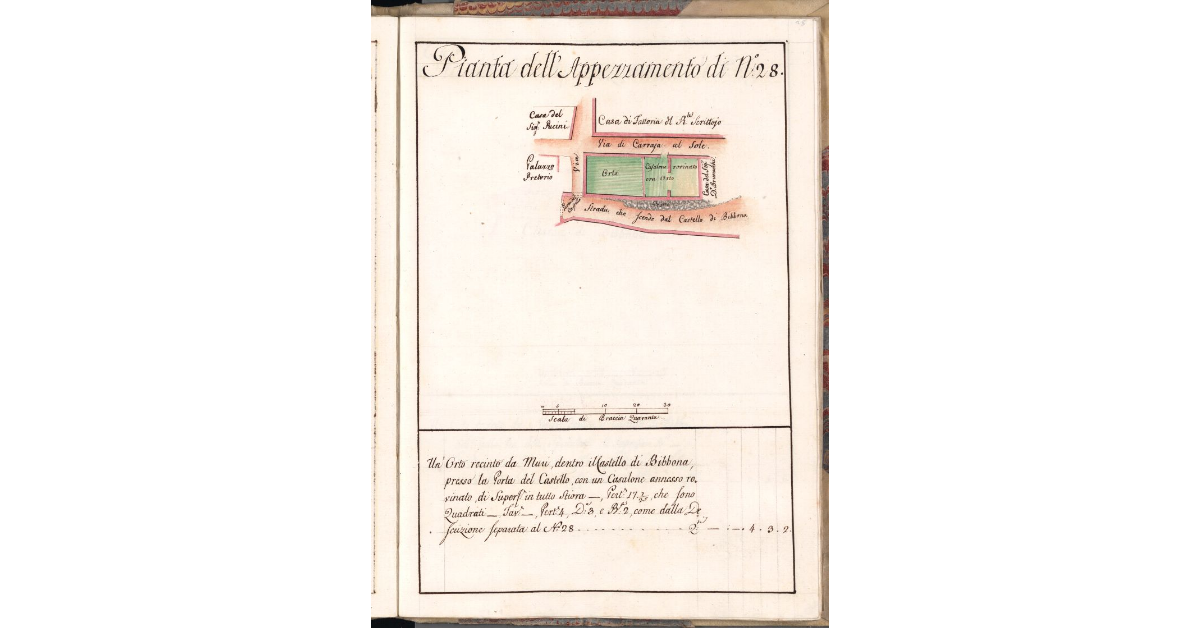 28
Pianta dell'Appezzamento di N.° 28.
Casa del
Sig.r Pucini
Casa di Fattoria d.l R.le Scrittojo
Via di Carraja al Sole.
Palazzo
Pretorio
Via
Orto
Casalone rovinato
ora Orto
Casa del Sig.
Strada, che scende dal Castello di Bibbona
0 5 10 20 30
Scala di Braccia Quaranta
Un' Orto recinto da Muri, dentro il Castello di Bibbona,
presso la Porta del Castello, con un Casalone annesso ro,
vinato, di Superf.e in tutto Stiora —, Pert.e 17. , che sono
Quadrati — Tav.e —, Pert.e 4, D.i 3, e B.a 2, come dalla De
scrizione separata al N.° 28 - - - - - - - - - - Q.ti — . — . 4 . 3 . 2.